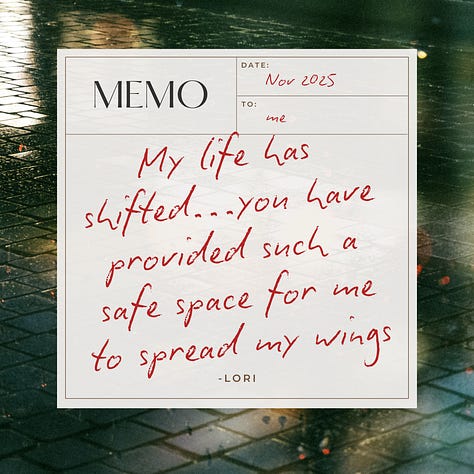 MEMO
DATE:
Nov 2025
TO:
me
My life has
shifted...you have
provided such a
safe space for me
to spread my wings
-LORI